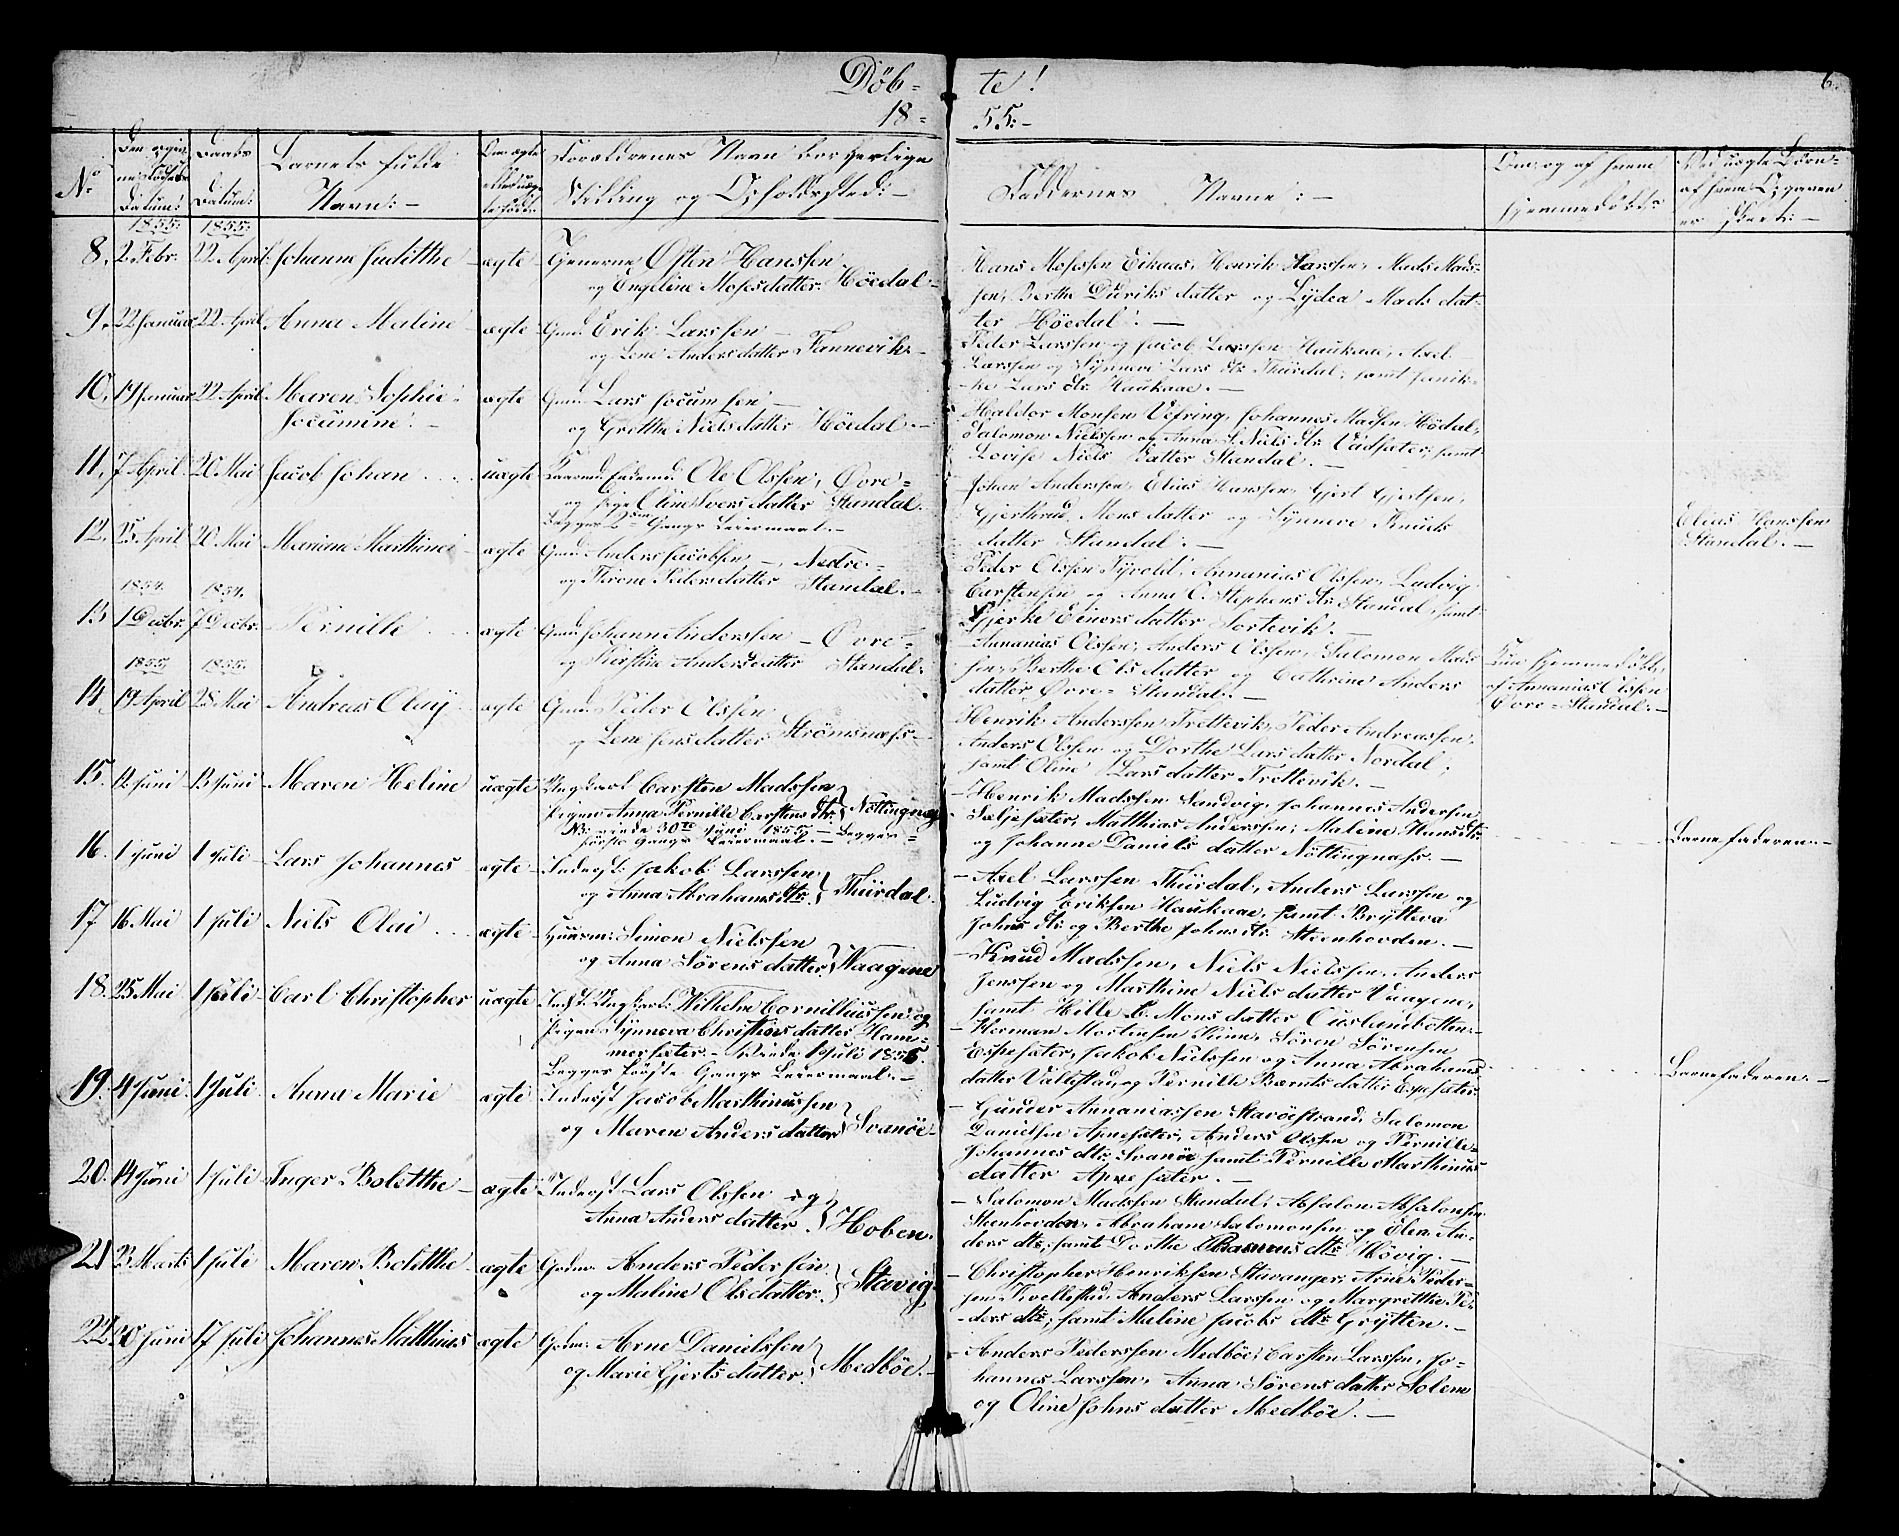 Döb=
18=
te!
55:-
6.
No
Den ogen=
ne Födsels
Datum:
Daabs
Datum:
Barnets fulde
Navn:-
Om ægte
eller uæg=
te
Forældrenes Navn borgerlige
Stilling og Opholdssted:-
Faddernes Navne:-
Om og af hvem
hjemmedöbt:
Ved uægte Börn=
af hvem Opgaven
er skeet:-
1855: 1855:
8. 2. Febr. 22 April Johanne Juditthe - ægte - Tjenerne Osten Hanssen
og Engeline Mosesdatter Höedal.-
Hans Mosessen Eikaas, Henrik Larssen, Mads Mads=
sen, Berthe Didriks datter og Lydea Mads dat=
ter Höedal:-
9. 22 Januar 22 April Anna Maline - ægte - Gmd: Erik Larssen -
og Lene Andersdatter Fannevik.-
Peder Larssen og Jacob Larssen Haukaae, Axel
Larssen og Synneve Lars dtr Thürdal, samt
Lars dtr Haukaae.-
10. 19 Januar 22 April Maren Sophie
Jocumine! - ægte Gmd: Lars Jocumsen -
og Gretthe Nielsdatter Höedal.-
Haldor Monsen Vefring, Johannes Madsen Hödal,
Salomon Nielssen og Anna S. Niels dtr samt
Lovise Niels datter Standal.-
11. 7 April 20 Mai Jacob Johan uægte Ole Olssen, Övre=
og pige Oline Iversdatter Standal.
Begges 2den Gangs Leiermaal.-
- Johan Anderssen, Elias Hanssen, Gjert Gjertsen,
Gjerthrud Mons datter og Synneve Knuds
datter Standal:-
Elias Hanssen
Standal.-
12. 25 April 20 Mai Mariane Marthine ægte - Gmd: Anders Jacobsen -, Nedre=
og Throne Pedersdatter Standal.-
Peder Olssen Tyvold, Annanias Olssen, Ludvig
Carstensen og Anna C. Stephens dtr Standal, samt
Gjerke Einersdatter Sortevik.-
1854. 1854.
13 1 Decbr. 7 Decbr. Pernille ægte Gmd: Johan Anderssen - Övre=
og Kirstine Andersdatter Standal.
- Annanias Olssen, Anders Olssen, Salomon Mads
sen, Berthe Ols datter og Cathrine Anders
datter Övre= Standal:-
hjemmedöbt
af Annanias Olssen
Övre= Standal.-
1855. 1855.
14. 19 April 28 Mai Andreas Olay ægte Gmd: Peder Olssen
og Lene Jensdatter Strömsnæss.-
- Henrik Anderssen Trettevik, Peder Andreassen,
Anders Olssen og Dorthe Lars datter Nordal;
samt Oline Larsdatter Trettevik.-
15. 12 Juni 13 Juni Maren Heline uægte Ungkarl Carsten Madssen
Pigen Anna Pernille Carstens dtr. Nöttingnæs
30te Juni 1855.- Begges=
förste Gangs Leiermaal.-
- Henrik Madssen Sandvig, Johannes Andersen
Seljesæter, Matthias Anderssen, Maline Hansdtr
og Johanne Daniels datter Nöttingnæs.-
Barnefaderen.-
16. 1 Juni 1 Juli Lars Johannes ægte - Inderst: Jakob Larssen
og Anna Abrahams dtr Thürdal.
- Axel Larssen Thürdal, Anders Larssen og
Ludvig Eriksen Haukaae, samt Brytteva
Johns dtr og Berthe Johns dtr Steenhovden.-
17 16 Mai 1 Juli Niels Olai ægte Simon Nielssen
og Anna Sörensdatter Waagene
- Knud Madssen, Niels Nielssen, Anders
Jenssen og Marthine Niels datter Vaagene,
samt Hille C. Mons datter Ouslandbotten.-
18. 25 Mai 1 Juli Carl Christopher uægte Ungkarl: Wilhelm Cornilliussen og
Pigen Synneva Christiansdatter Ham=
mersæter.- 1 Juli 1855.
Begges förste Gangs Leiermaal.-
- Herman Mortensen Hinne, Sören Sörensen
Espesæter, Jakob Nielssen og Anna Abrahams
datter Vallestad, og Pernille Bernts datter Espesæter.
Barnefaderen.-
19. 4 Juni 1 Juli Anna Marie ægte Inderst Jacob Marthinussen
og Maren Andersdatter Svanöe -
- Gunder Annaniassen Stavöestrand, Salomon
Danielsen Apnesæter, Anders Olssen og Pernille
Johannes dtr Svanöe samt Pernille Marthinus
datter Apnesæter.-
20. 14 Juni 1 Juli Inger Boletthe - ægte Inderst Lars Olssen og
Anna Andersdatter. Hoben.
- Salomon Madssen Standal, Absalon Absalonsen
Steenhovden, Abraham Salomonsen og Elen An=
ders dtr; samt Dorthe Rasmus dtr Hövig.-
21 23 Marts 1 Juli Maren Boletthe - ægte Gmd: Anders Pedersen
og Maline Olsdatter Stavig
- Christopher Henriksen Stavanger, Arne Peder=
sen Kvellestad, Anders Larssen og Margretthe Pe=
ders dtr, samt Maline Jacobs dtr Grytten.-
22 20 Juni 17 Juli Johannes Matthias ægte Arne Danielssen
og Marie Gjertsdatter. Medböe.-
- Anders Pederssen Medböe, Carsten Larssen, Jo=
hannes Larssen, Anna Sörensdatter Solem
og Oline Johns datter Medböe.-